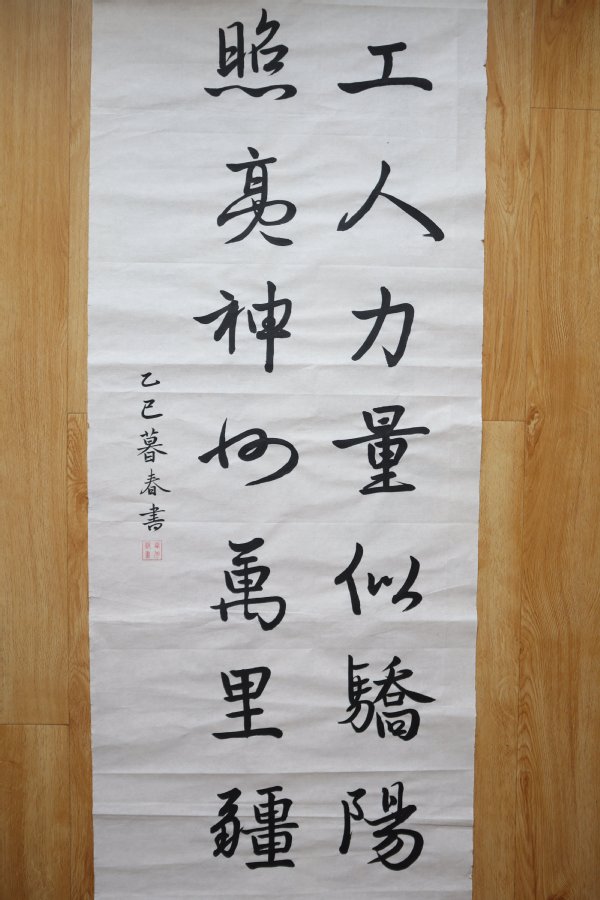 工人力量似驕陽
照亮神州萬里疆
乙巳暮春書